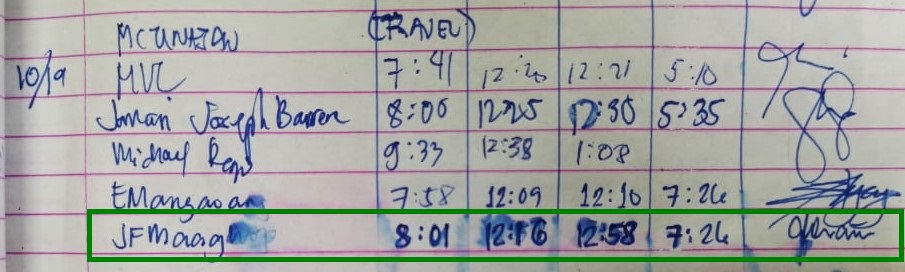 MCUNATON (TRAVEL)
10/19 MVC 7:41 12:20 12:21 5:10
Joman Joseph Barren 8:00 12:25 12:30 5:35
Michael 9:33 12:38 1:08
EMangaoang 7:58 12:09 12:10 7:26
8:01 12:16 12:58 7:26